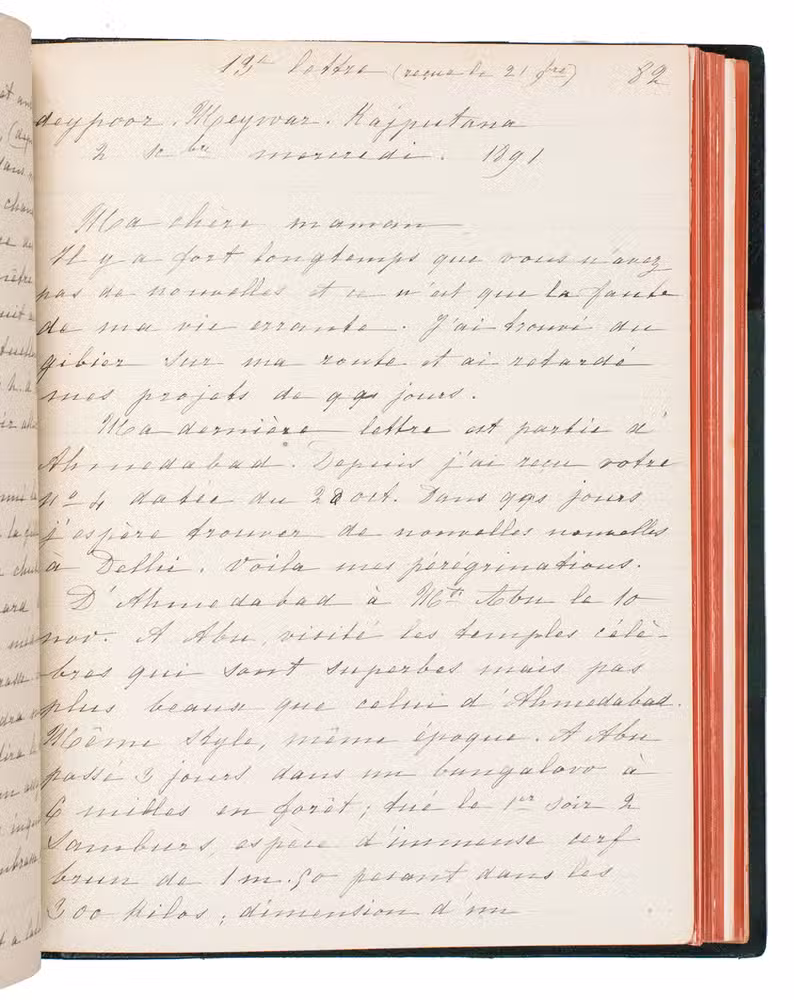 13e lettre (reçue le 21 bre) 82
deypoor. Meywar. Rajputana
2 Xbre mercredi. 1891
Ma chère maman
Il y a fort longtemps que vous n'avez
pas de nouvelles et ce n'est que la faute
de ma vie errante. J'ai trouvé du
gibier sur ma route et ai retardé
mes projets de qq jours.
Ma dernière lettre est partie d'
Ahmedabad. Depuis j'ai reçu votre
No 4 datée du 28 oct. Dans qqs jours
j'espère trouver de nouvelles nouvelles
à Delhi. Voila mes pérégrinations.
D'Ahmedabad à Mt Abu le 10
nov. A Abu, visité les temples célè-
bres qui sont superbes mais pas
plus beaux que celui d'Ahmedabad.
Même style, même époque. A Abu
passé 3 jours dans un bungalow à
6 milles en forêt; tué le 1er soir 2
Samburs, espèce d'immense cerf
brun de 1m.50 pesant dans les
300 kilos; dimension d'un